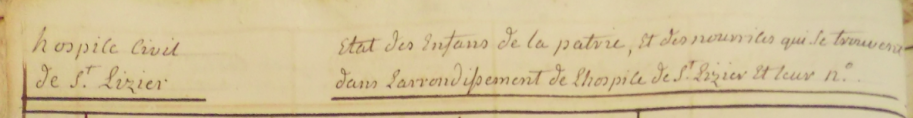 hospice Civil
de S.T Lizier
Etat des Enfans de la patrie, Et des nourrices qui Se trouvent
dans Larrondissement de Lhospice de S.T Lizier Et leur n.o